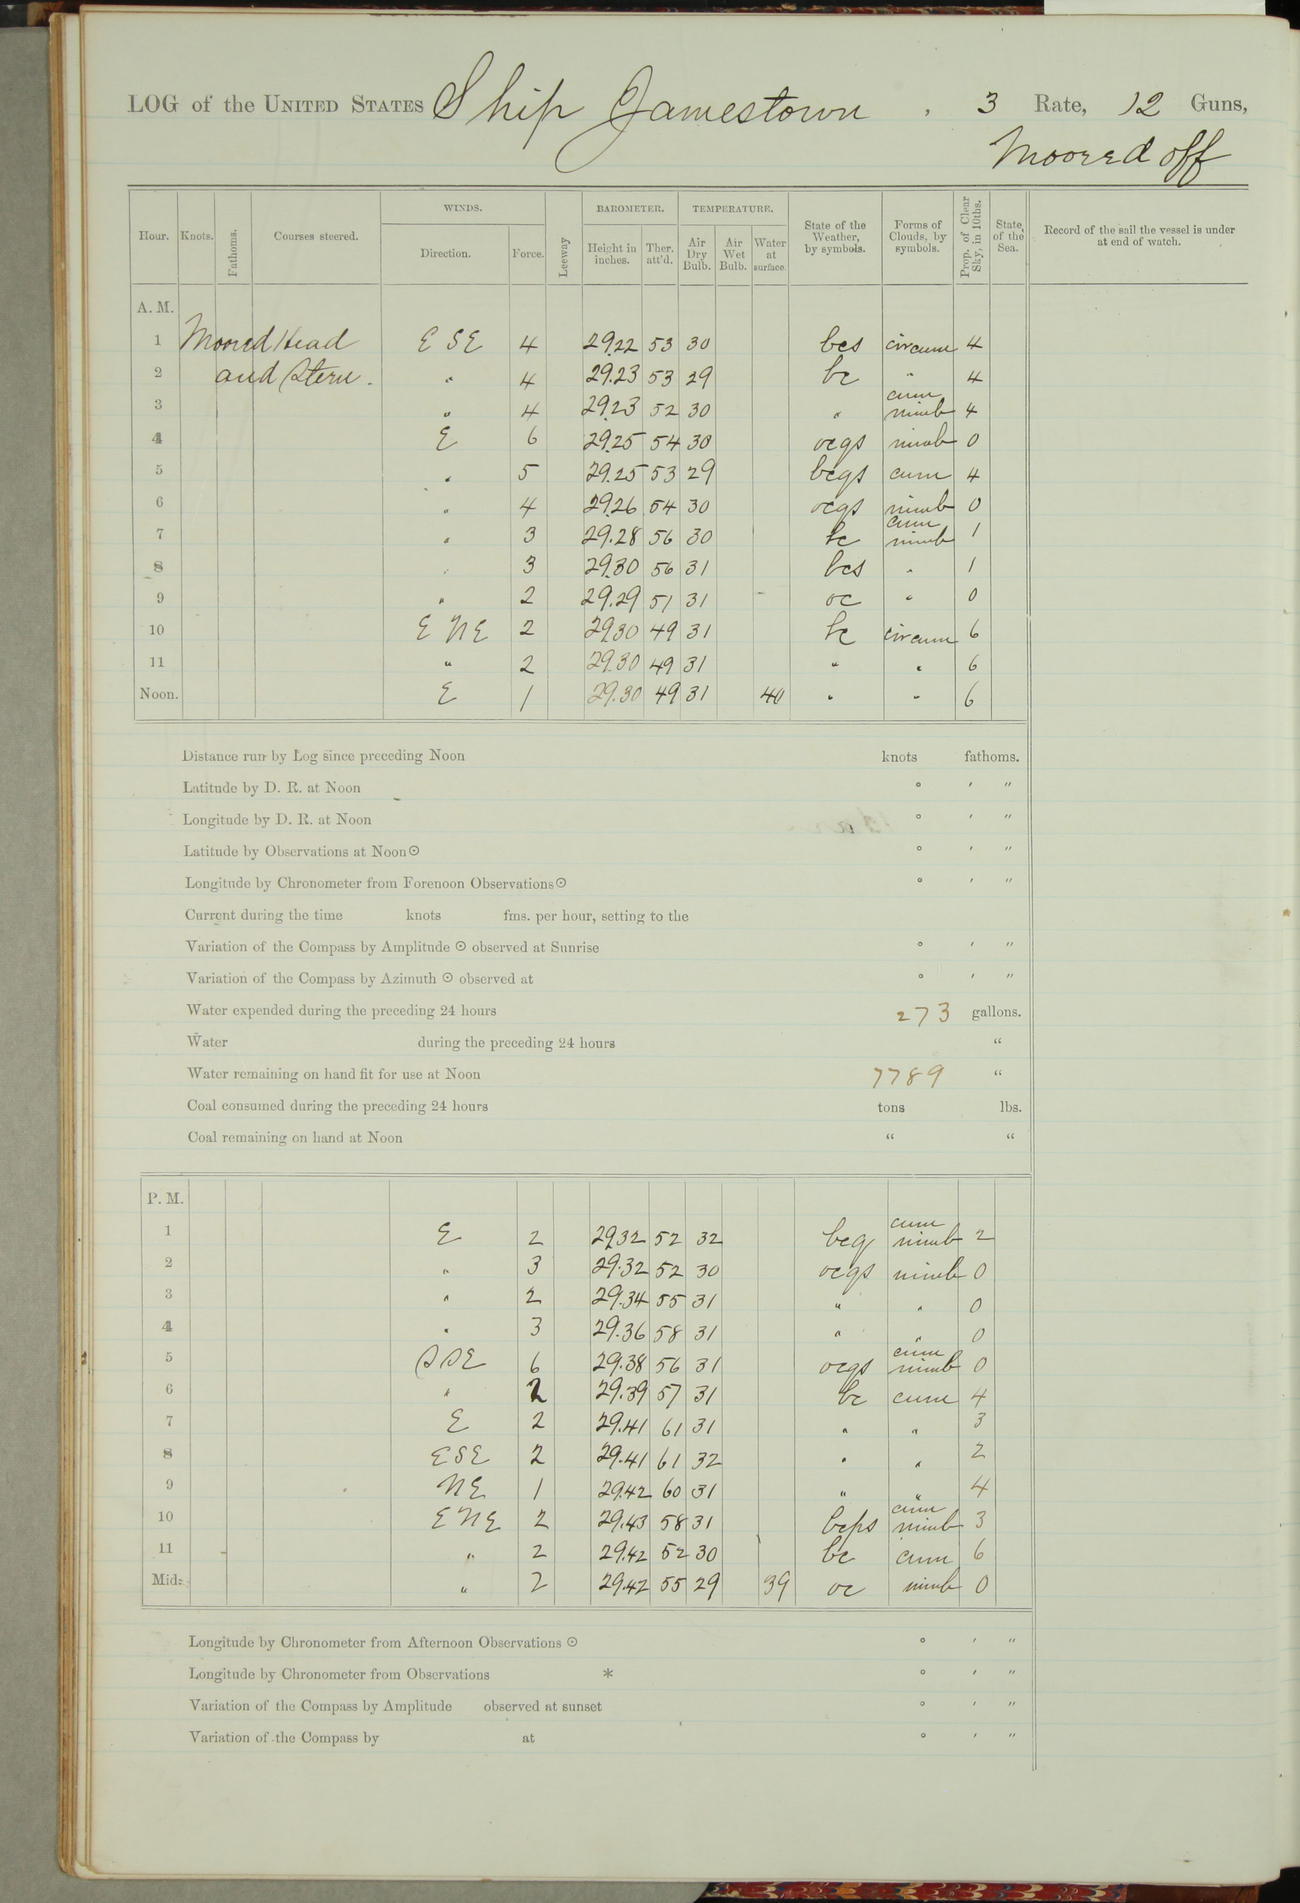 LOG of the UNITED STATES Ship Jamestown , 3 Rate, 12 Guns,
Moored off
WINDS. BAROMETER. TEMPERATURE.
Hour. Knots. Fathoms. Courses steered. Direction. Force. Leeway Height in inches. Ther. att'd. Air Dry Bulb. Air Wet Bulb. Water at surface. State of the Weather, by symbols. Forms of Clouds, by symbols. Prop. of Clear Sky, in 10ths. State of the Sea. Record of the sail the vessel is under at end of watch.
A. M.
1 Moored Head E S E 4 29.22 53 30 bcs circum 4
2 and Stern. " 4 29.23 53 29 bc " 4
3 " 4 29.23 52 30 " cum nimb 4
4 E 6 29.25 54 30 ocqs nimb 0
5 " 5 29.25 53 29 bcqs cum 4
6 " 4 29.26 54 30 ocqs nimb 0
7 " 3 29.28 56 30 bc cum nimb 1
8 " 3 29.30 56 31 bcs " 1
9 " 2 29.29 51 31 oc " 0
10 E N E 2 29.30 49 31 bc circum 6
11 " 2 29.30 49 31 " " 6
Noon. E 1 29.30 49 31 40 " " 6
Distance run by Log since preceding Noon knots fathoms.
Latitude by D. R. at Noon ° ′ ″
Longitude by D. R. at Noon ° ′ ″
Latitude by Observations at Noon ☉ ° ′ ″
Longitude by Chronometer from Forenoon Observations ☉ ° ′ ″
Current during the time knots fms. per hour, setting to the
Variation of the Compass by Amplitude ☉ observed at Sunrise ° ′ ″
Variation of the Compass by Azimuth ☉ observed at ° ′ ″
Water expended during the preceding 24 hours 273 gallons.
Water during the preceding 24 hours "
Water remaining on hand fit for use at Noon 7789 "
Coal consumed during the preceding 24 hours tons lbs.
Coal remaining on hand at Noon " "
P. M.
1 E 2 29.32 52 32 bcq cum nimb 2
2 " 3 29.32 52 30 ocqs nimb 0
3 " 2 29.34 55 31 " " 0
4 " 3 29.36 58 31 " " 0
5 SSE 6 29.38 56 31 ocqs cum nimb 0
6 " 2 29.39 57 31 bc cum 4
7 E 2 29.41 61 31 " " 3
8 ESE 2 29.41 61 32 " " 2
9 NE 1 29.42 60 31 " " 4
10 ENE 2 29.43 58 31 bcps cum nimb 3
11 " 2 29.42 52 30 bc cum 6
Mid: " 2 29.42 55 29 39 oc nimb 0
Longitude by Chronometer from Afternoon Observations ☉ ° ′ ″
Longitude by Chronometer from Observations * ° ′ ″
Variation of the Compass by Amplitude observed at sunset ° ′ ″
Variation of the Compass by at ° ′ ″